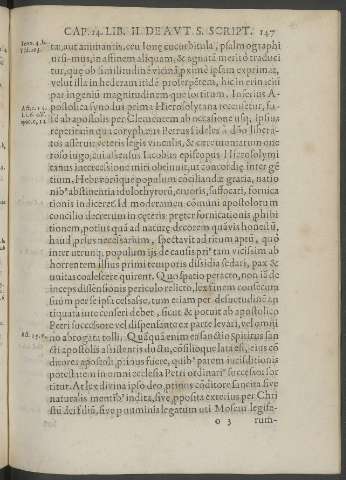 CAP. 14. LIB. II. DE AVT. S. SCRIPT. 147
tæ, aut animantis, ceu longe cucurbitula, psalmographi
mus, in affinem aliquam, & agnatā merito traduci
tur, que ob similitudinē vicinā, pxime ipsam exprimat,
velut illa in hederam itidē prosperpētem, hic in erinaciū
par ingenii magnitudinem quę sortitum. Inferius A-
postolica synodus prima Hierosolytana recensetur, fa-
ab apostolis per Clementem ab occasione usq; ipsus
repetita in qua coryphæus Petrus fideles à dāno libera-
tos asseruit veteris legis vinculis, & cæremoniarum one
roso iugo, cui assensus Iacobus episcopus Hierosolymi
tanus intercessione miti obtinuit, ut concordię inter gē
tium, Hebreorūque populum conciliandæ gratia, natio
nib' abstinentia idolothytorū, cruoris, suffocati, fornica
tionis indiceret. Id moderamen cōmuni apostolorum
concilio decretum in cęteris pręter fornicationis phibi
tionem, potius quā ad naturę decorem quāvis honeſtū,
haud prius necessarium, spectavit ad ritum aptū, quo
inter utrunq; populum iis de causis pri' tam vicissim ab
horrentem illius primi temporis dissidia sedari, pax &
unitas coalescere quirent. Quo spatio peracto, non iā de
inceps dissensionis periculo relicto, lex finem consecuta
suūm per se ipsa cessasse, tum etiam per desuetudinē an
tiquata iure censeri debet, sicut & potuit ab apostolico
Petri successore vel dispensante ex parte levari, vel omni
no abrogata tolli. Quāquā enim ex sancto Spiritus san
cti apostolis assistentis ductu, consilioque lata est, eius cō
ditores apostoli prius fuere, quib' parem iurisdictionis
potestatem in omni ecclesia Petri ordinari' successor sor
titur. At lex divina ipso deo, primus cōditore sancita sive
naturalis mentib' indita, sive pposita exterius per Chri
stū dei filiū, sive p numinis legatum uti Mosem legisla-
o 3 rum-